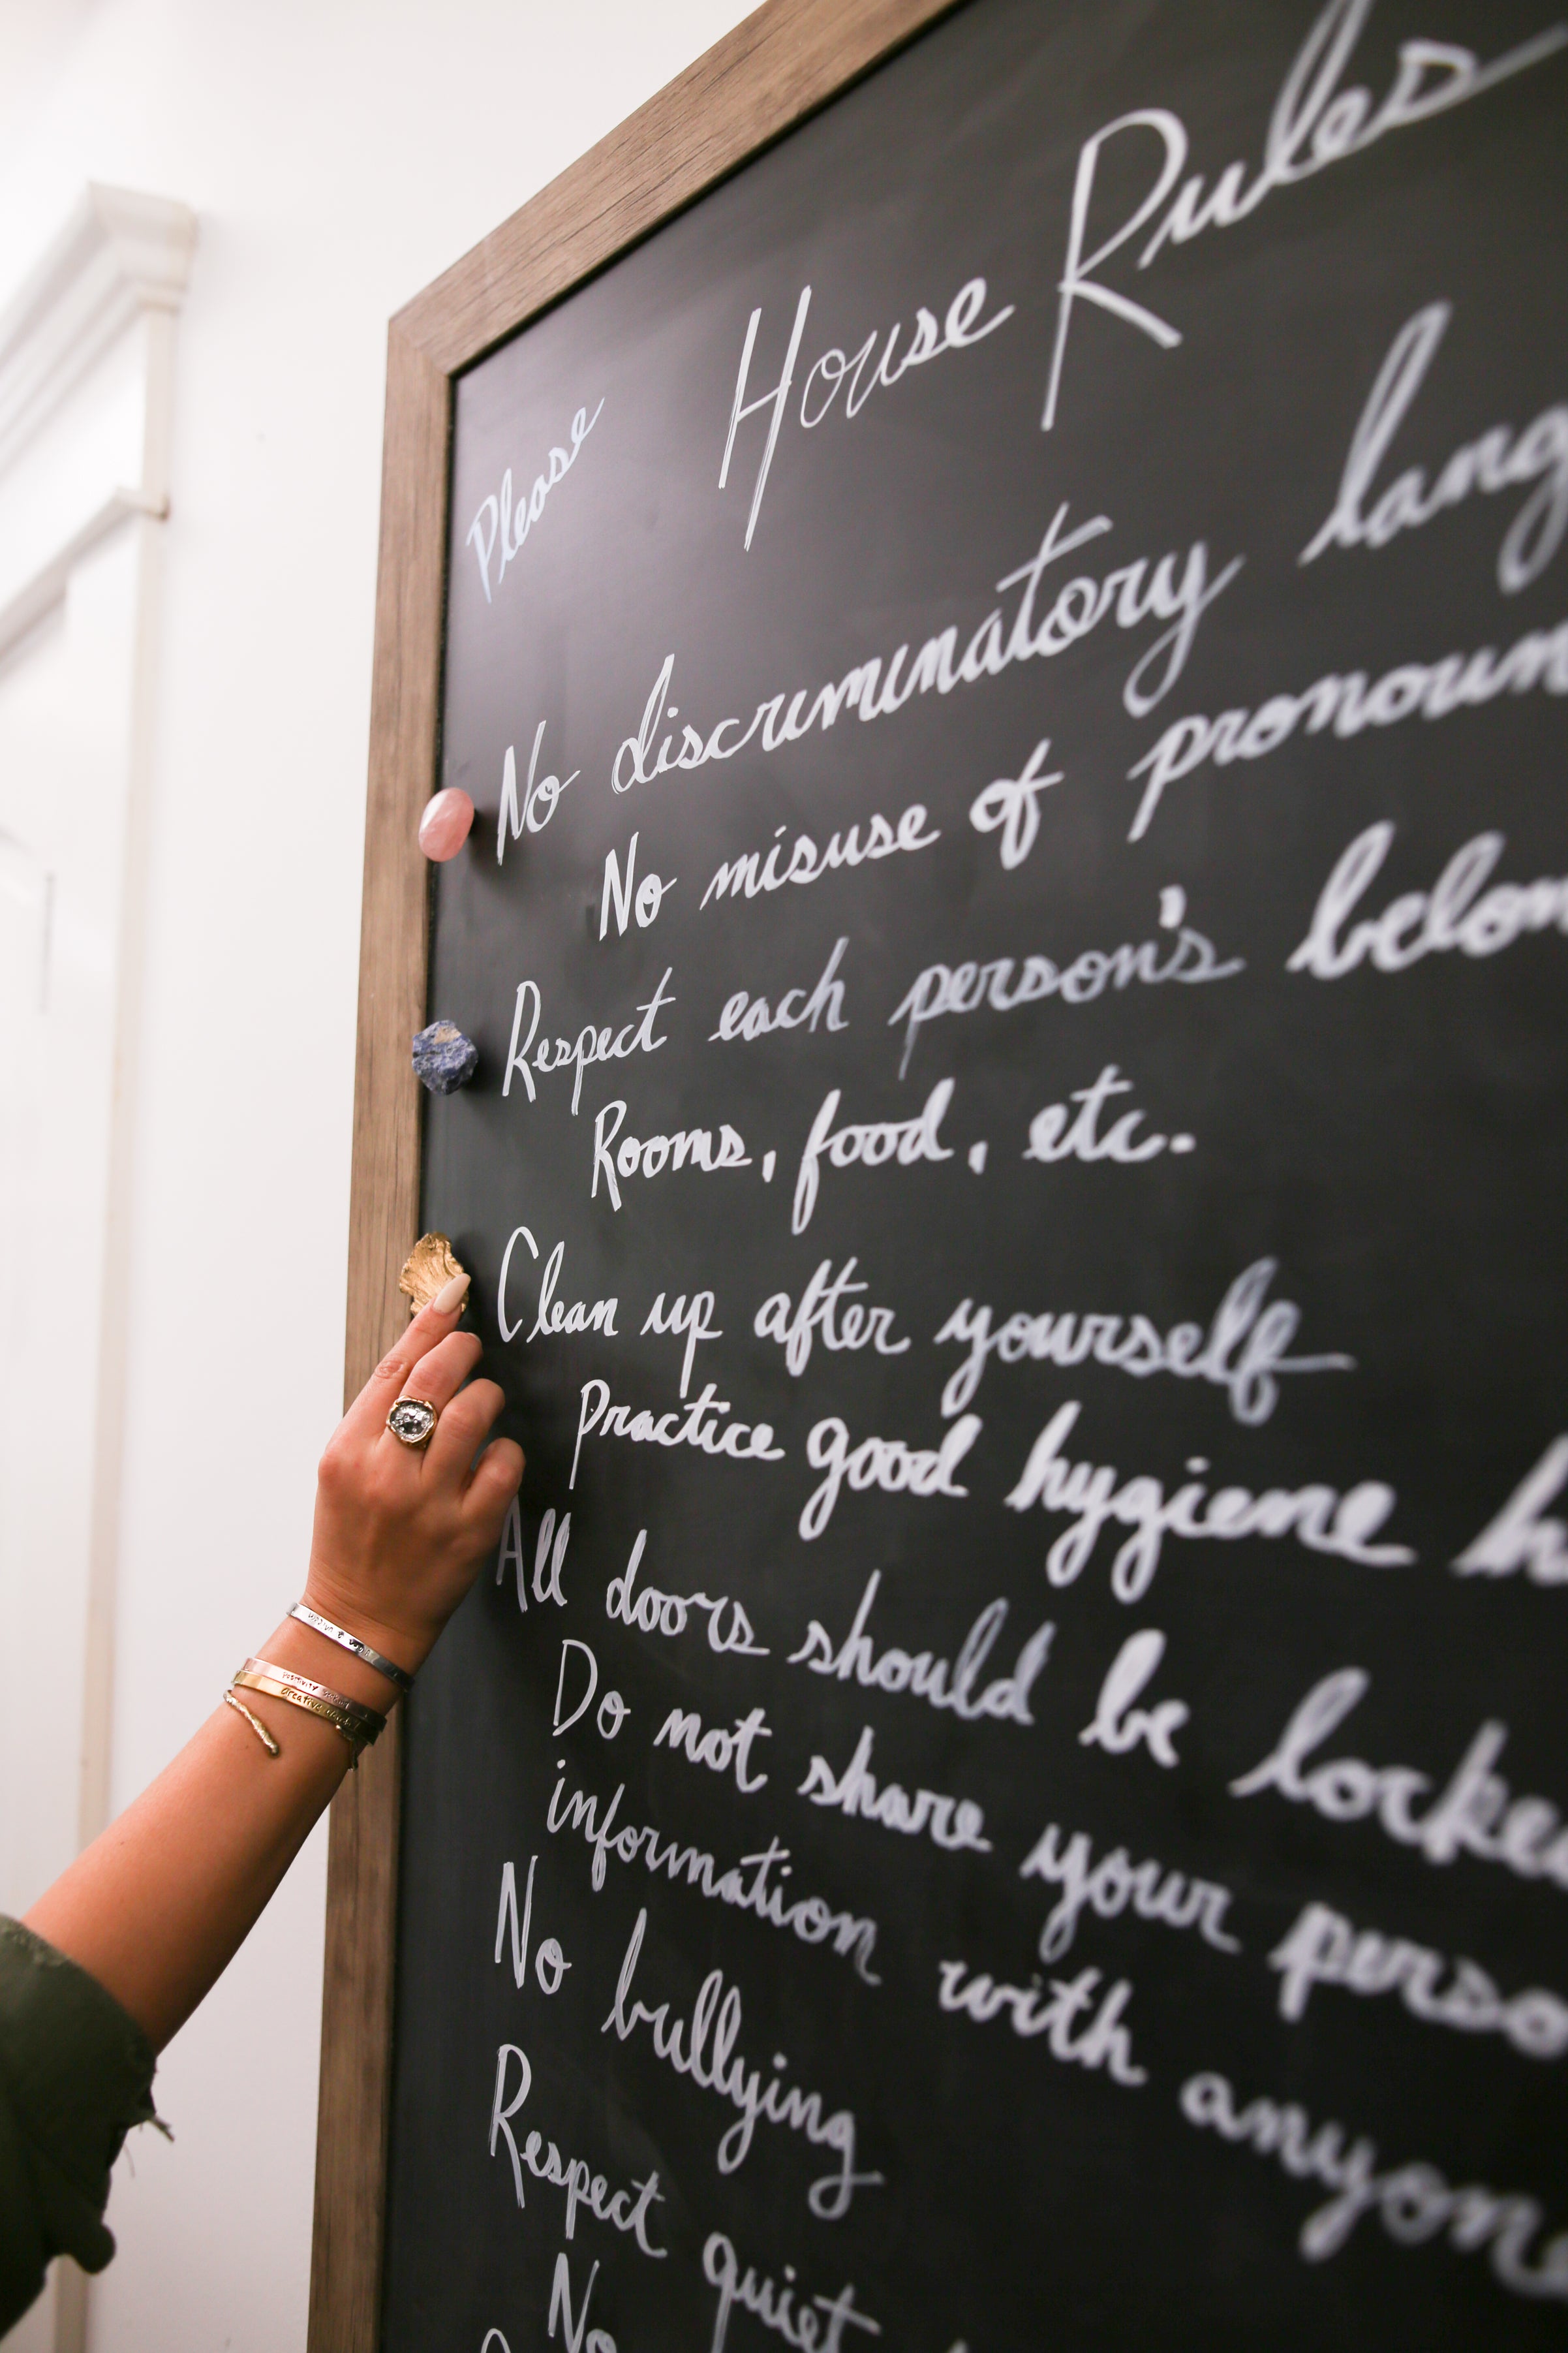 House Rules
Please
No discriminatory lang
No misuse of pronoun
Respect each person's belon
Rooms, food, etc.
Clean up after yourself
Practice good hygiene h
All doors should be locke
Do not share your perso
information with anyone
No bullying
Respect quiet
No